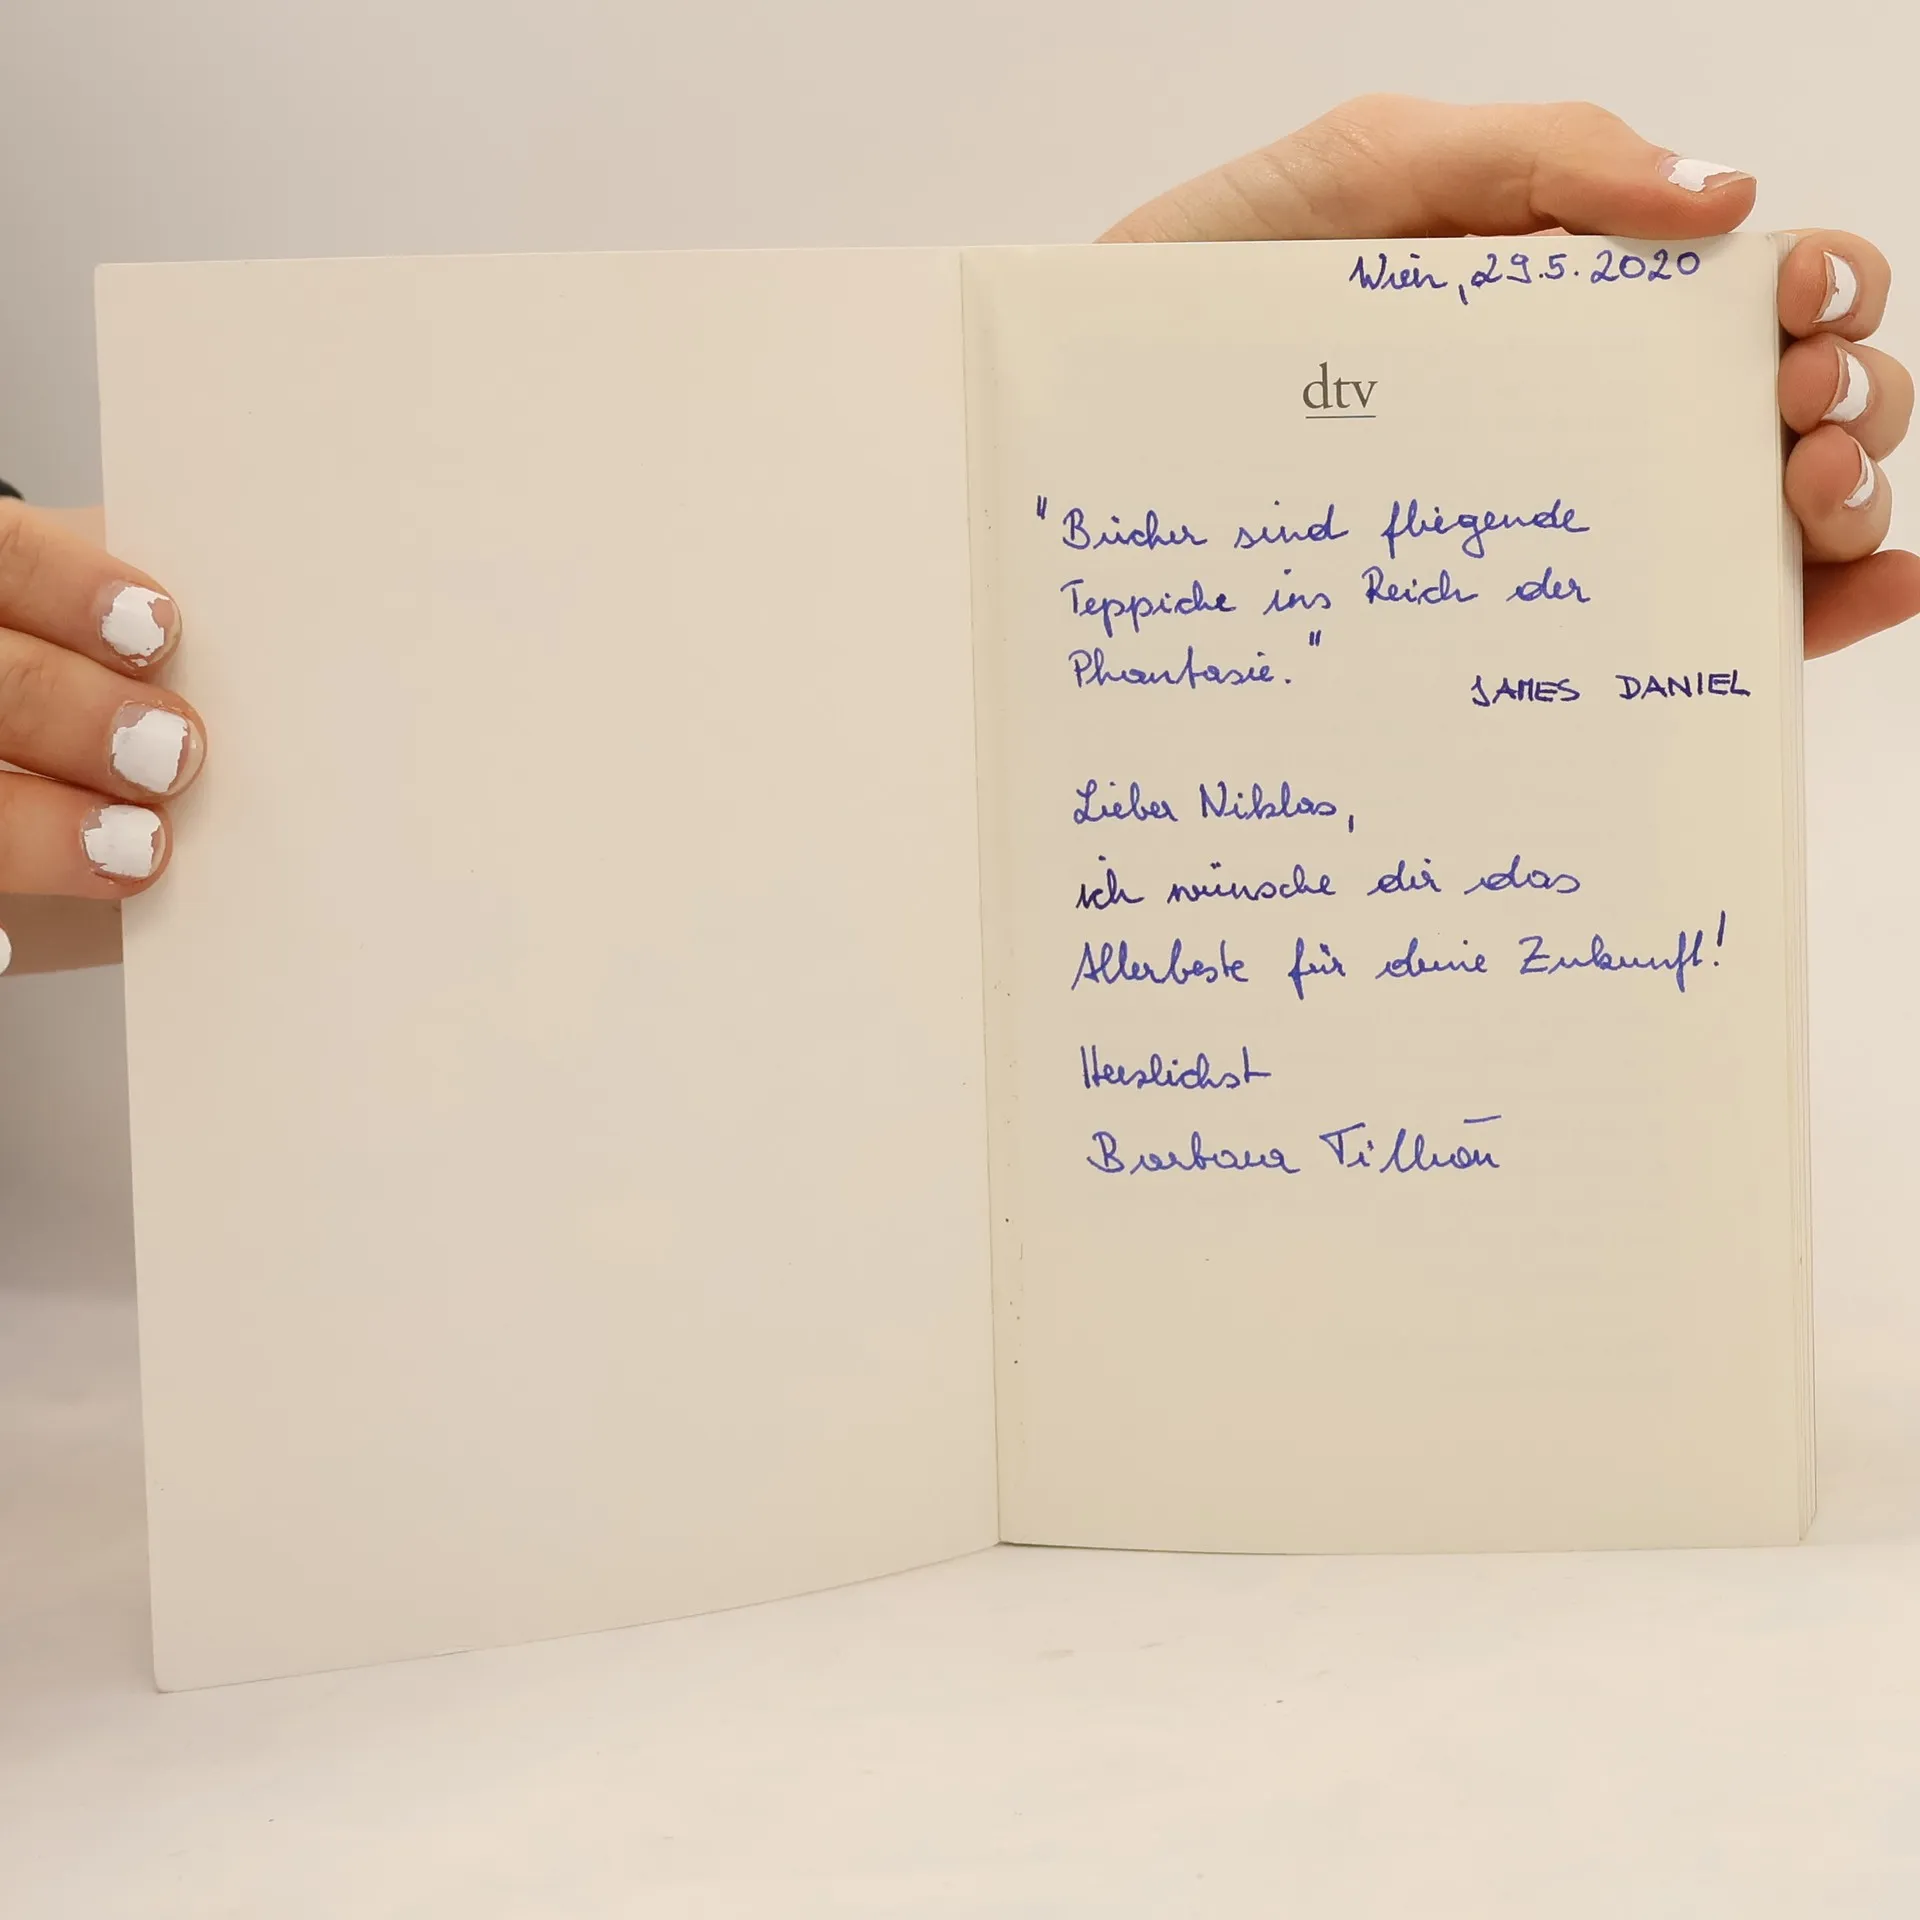 Wien, 29.5.2020
dtv
"Bücher sind fliegende
Teppiche ins Reich der
Phantasie."
JAMES DANIEL
Lieber Niklas,
ich wünsche dir das
Allerbeste für deine Zukunft!
Herzlichst
Barbara